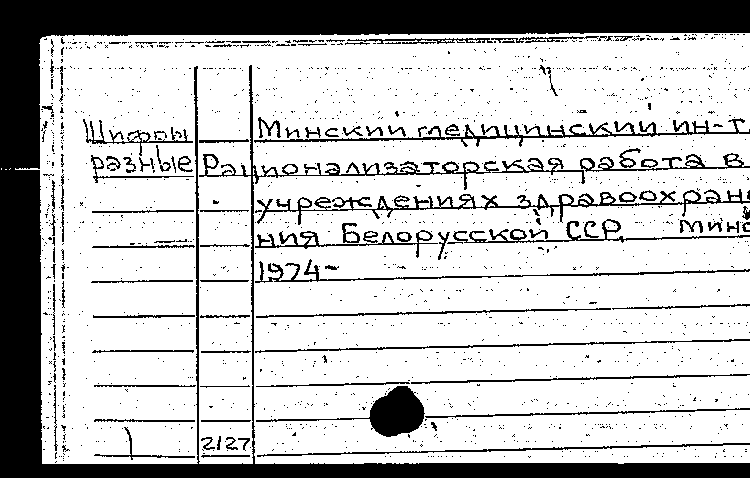 Шифры
разные
Минский медицинский ин-т.
Рационализаторская работа в
учреждениях здравоохране
ния Белорусской ССР. Минс
1974-
2127